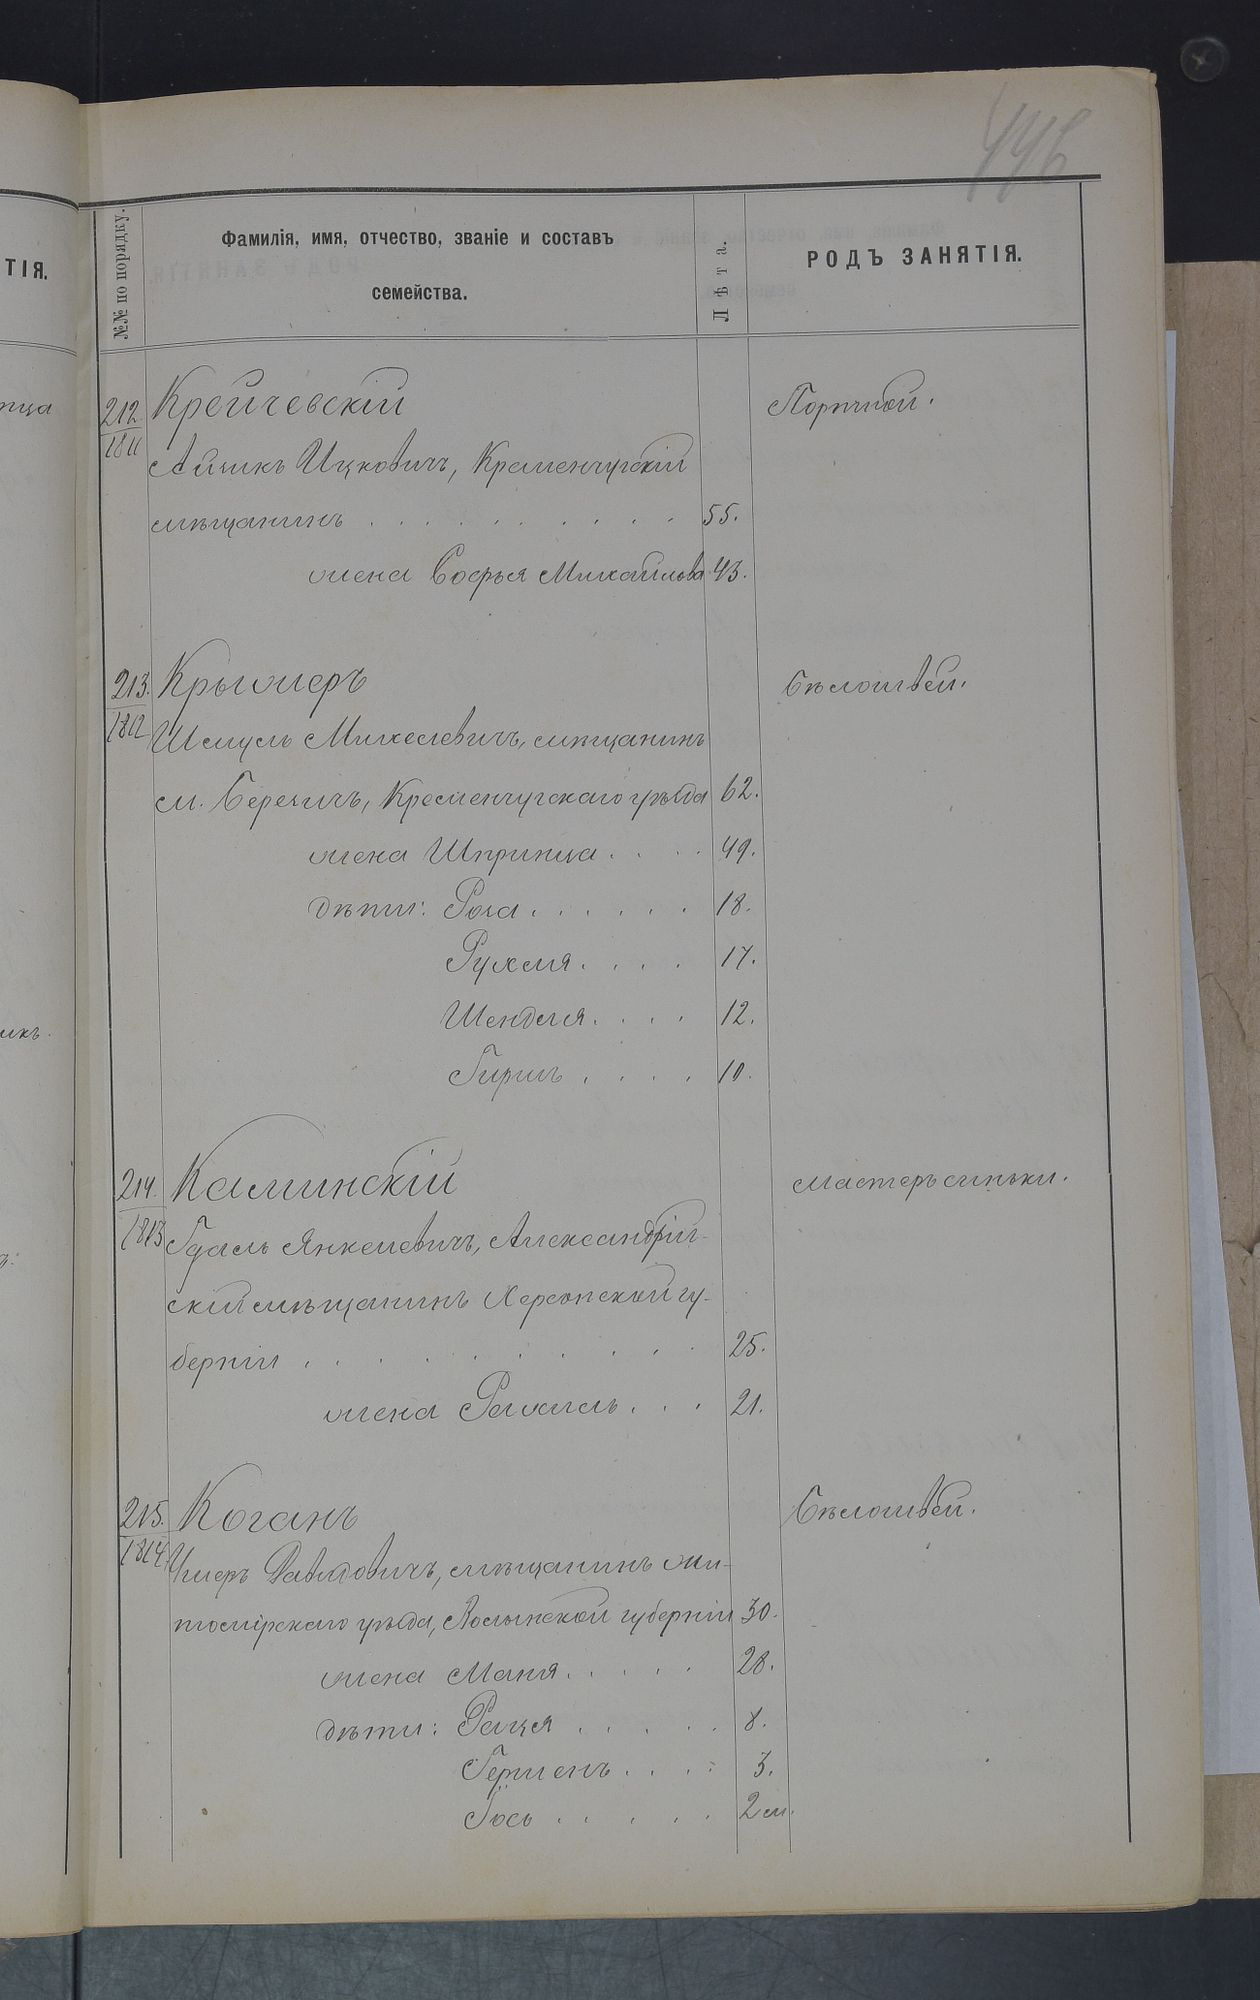 446
ТІЯ.
№№ по порядку.
Фамилія, имя, отчество, званіе и составъ
семейства.
Лѣта.
РОДЪ ЗАНЯТІЯ.
212.
1811
Крейчевскій
Портной.
Айзикъ Ицковичъ, Кременчугскій
мѣщанинъ . . . . . . . . . . 55.
жена Софья Михайлова 43.
213.
1812
Крыжмеръ
Бѣлошвей.
Шмуль Михелевичъ, мѣщанинъ
м. Кременчугскаго уѣзда 62.
жена Шпринца . . . . 49.
дѣти: Роза . . . . . . 18.
Рухля . . . . 17.
Шендля . . . . 12.
Гиршъ . . . . 10.
214.
1813
Каминскій
Мастеръ синьки.
Гдаль Янкелевичъ, Александрій-
скій мѣщанинъ Херсонской гу-
берніи . . . . . . . . . . 25.
жена Рахиль . . . 21.
215.
1814
Коганъ
Бѣлошвей.
Давидовичъ, мѣщанинъ Жи-
томірскаго уѣзда, Волынской губерніи 30.
жена Маня . . . . . 28.
дѣти: . . . . . 8.
. . . . 3.
. . . . . 2 м.